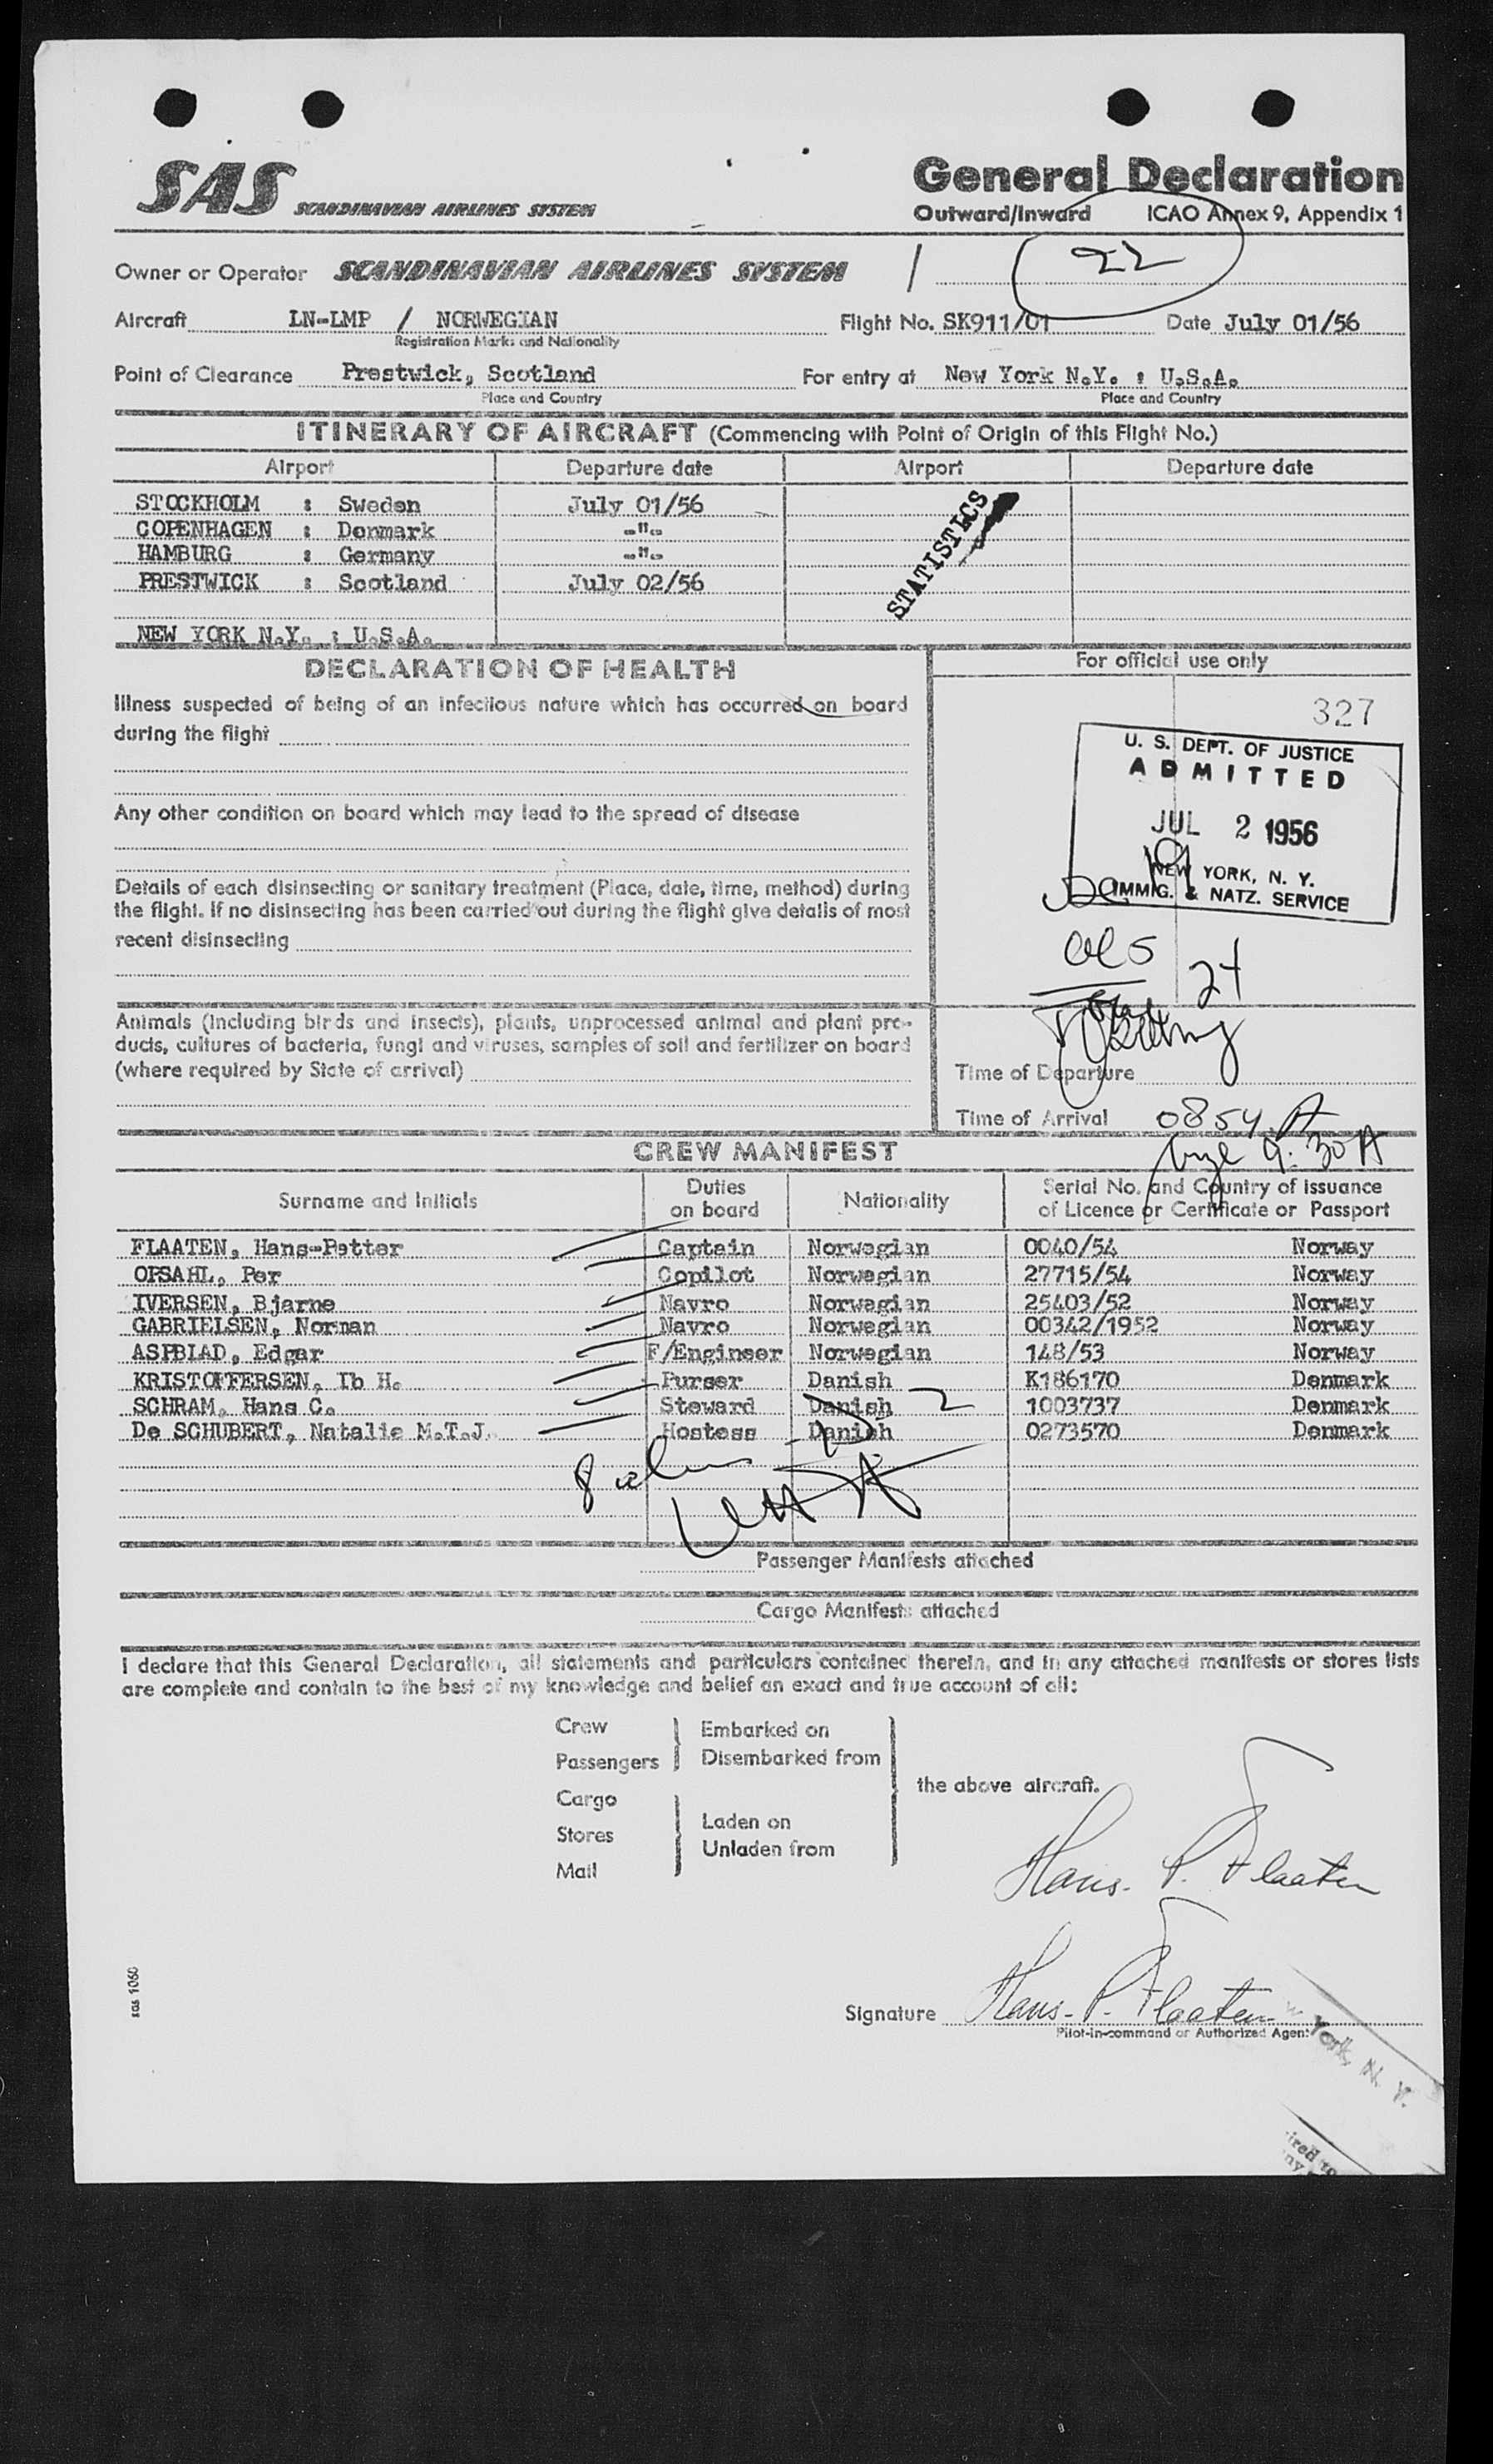 SAS SCANDINAVIAN AIRLINES SYSTEM
General Declaration
Outward/Inward ICAO Annex 9, Appendix 1
Owner or Operator SCANDINAVIAN AIRLINES SYSTEM / 22
Aircraft LN-LMP / NORWEGIAN Flight No. SK911/01 Date July 01/56
Registration Marks and Nationality
Point of Clearance Prestwick, Scotland For entry at New York N.Y. : U.S.A.
Place and Country Place and Country
ITINERARY OF AIRCRAFT (Commencing with Point of Origin of this Flight No.)
Airport Departure date Airport Departure date
STOCKHOLM : Sweden July 01/56
COPENHAGEN : Denmark -"-
HAMBURG : Germany -"-
PRESTWICK : Scotland July 02/56
STATISTICS
NEW YORK N.Y. : U.S.A.
DECLARATION OF HEALTH
For official use only
Illness suspected of being of an infectious nature which has occurred on board
during the flight
327
U. S. DEPT. OF JUSTICE
ADMITTED
JUL 2 1956
NEW YORK, N. Y.
IMMIG. & NATZ. SERVICE
Any other condition on board which may lead to the spread of disease
Details of each disinsecting or sanitary treatment (Place, date, time, method) during
the flight. If no disinsecting has been carried out during the flight give details of most
recent disinsecting
24
Animals (including birds and insects), plants, unprocessed animal and plant pro-
ducts, cultures of bacteria, fungi and viruses, samples of soil and fertilizer on board
(where required by State of arrival)
Time of Departure
Time of Arrival 0854 A
9:30 A
CREW MANIFEST
Surname and Initials Duties on board Nationality Serial No. and Country of issuance of Licence or Certificate or Passport
FLAATEN, Hans-Petter Captain Norwegian 0040/54 Norway
OPSAHL, Per Copilot Norwegian 27715/54 Norway
IVERSEN, Bjarne Navro Norwegian 25403/52 Norway
GABRIELSEN, Norman Navro Norwegian 00342/1952 Norway
ASPBLAD, Edgar F/Engineer Norwegian 148/53 Norway
KRISTOFFERSEN, Ib H. Purser Danish K186170 Denmark
SCHRAM, Hans C. Steward Danish 1003737 Denmark
De SCHUBERT, Natalie M.T.J. Hostess Danish 0273570 Denmark
Passenger Manifests attached
Cargo Manifests attached
I declare that this General Declaration, all statements and particulars contained therein, and in any attached manifests or stores lists
are complete and contain to the best of my knowledge and belief an exact and true account of all:
Crew
Passengers
Embarked on
Disembarked from
Cargo
Stores
Mail
Laden on
Unladen from
the above aircraft.
Hans. P. Flaaten
sas 1060
Signature Hans. P. Flaaten
Pilot-in-command or Authorized Agent
York, N. Y.